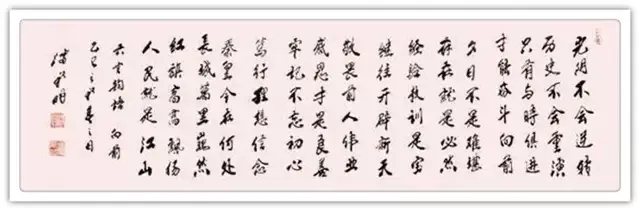 光阴不会逆转
历史不会重演
只有与時俱进
才能奋斗向前
日不是难堪
存在就是必然
经验教训是宝
继往开辟新天
敬畏前人伟业
感恩才是良善
牢记不忘初心
笃行理想信念
秦皇今在何处
長城萬里巍然
红旗高高飘扬
人民就是江山
六言韵语 向前
乙巳之春之日